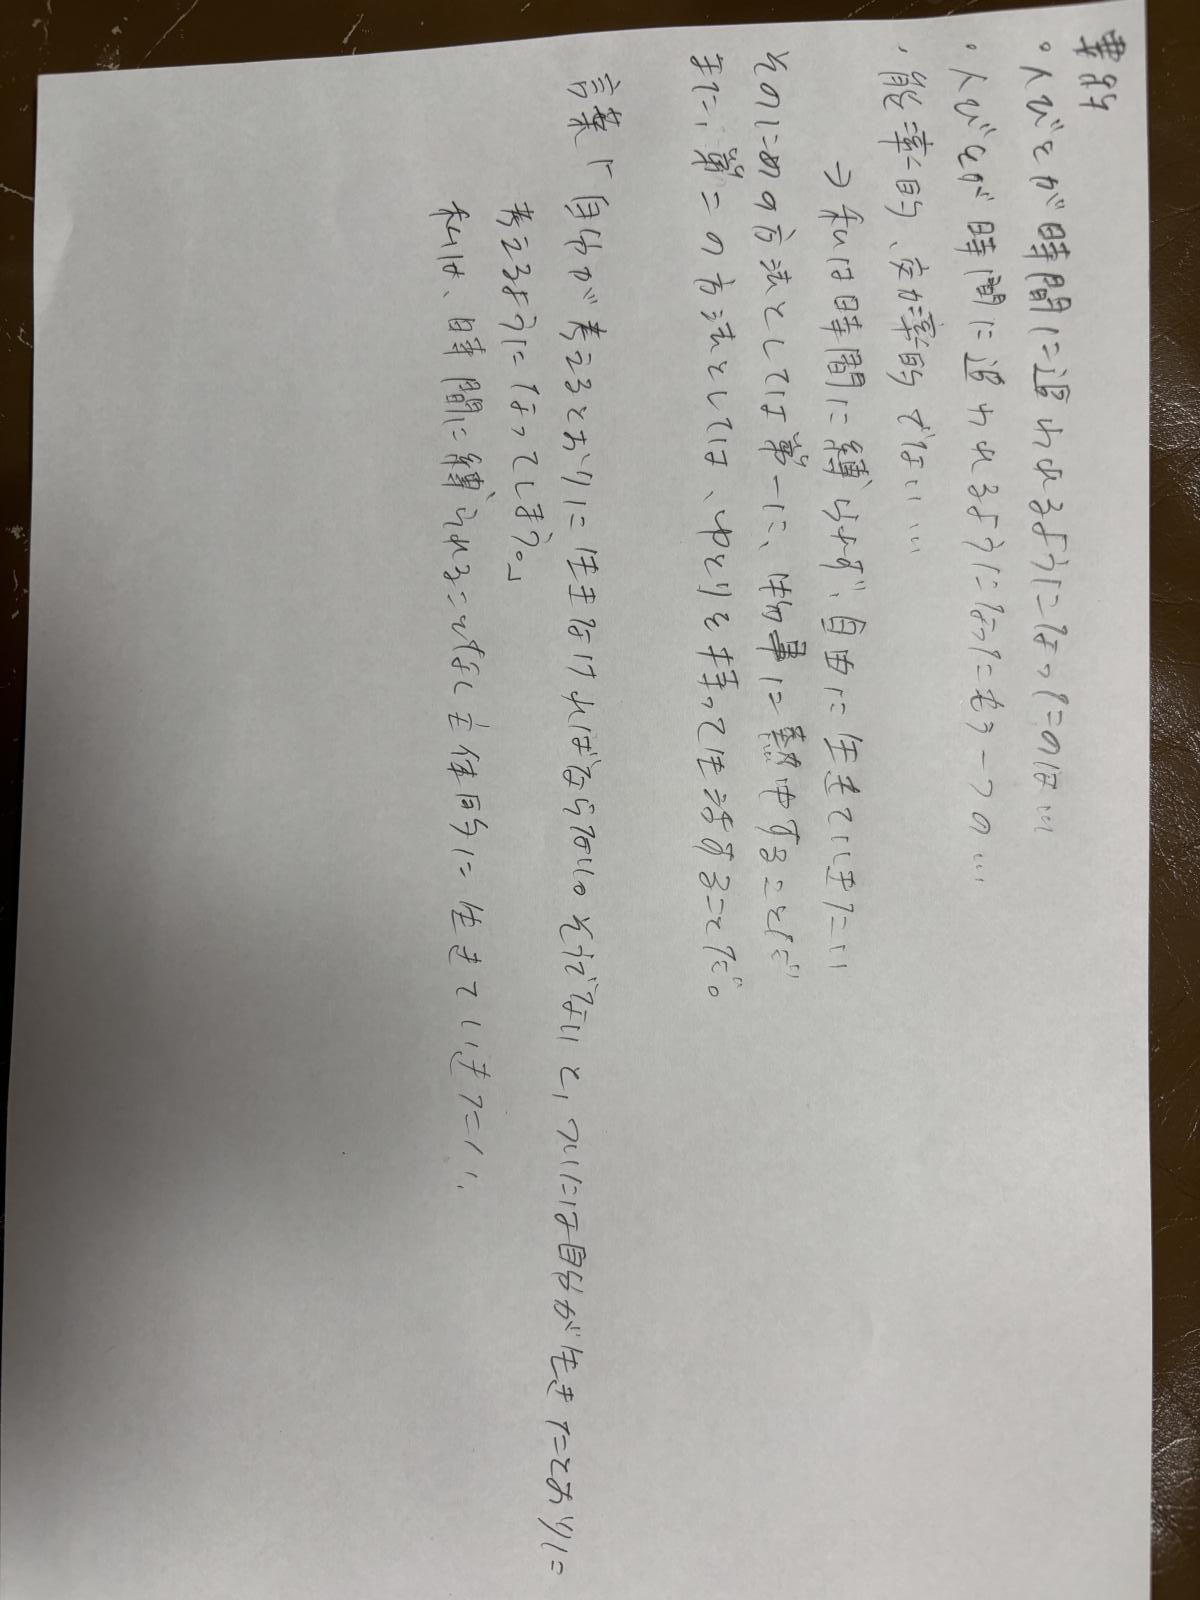 要約
・人びとが時間に追われるようになったのは…
・人びとが時間に追われるようになったもう一つの…
・能率的、効率的でない…
→私は時間に縛られず、自由に生きていきたい
そのための方法としては第一に、物事に熱中することだ
また、第二の方法としては、ゆとりを持って生活することだ。
言葉「自分が考えるとおりに生きなければならない。そうでないと、ついには自分が生きたとおりに
考えるようになってしまう。」
私は、時間に縛られることなく主体的に生きていきたい。